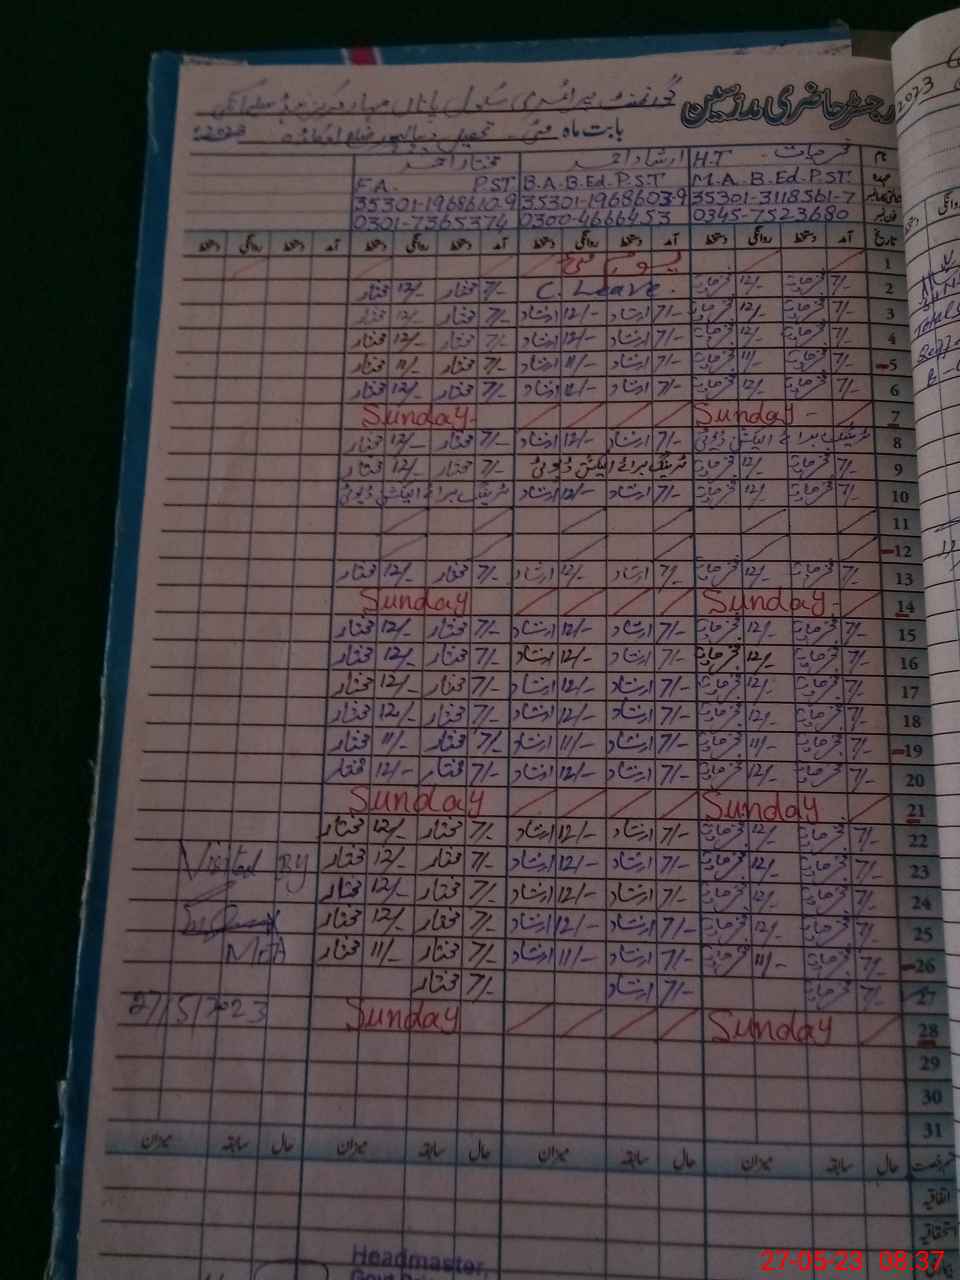 رجسٹر حاضری مدرسین
گورنمنٹ پرائمری سکول
2023
بابت ماہ مئی تحصیل دیپالپور ضلع اوکاڑہ 2023
نام فرحات H.T ارشاد احمد مختار احمد
عہدہ M.A. B.Ed. P.ST. B.A. B.Ed. P.S.T F.A. P.ST
35301-3118561-7 35301-1968603-9 35301-1968610-9
0345-7523680 0300-4666453 0301-7365374
تاریخ آمد دستخط روانگی دستخط آمد دستخط روانگی دستخط آمد دستخط روانگی دستخط آمد دستخط روانگی دستخط
1 یوم مئی
2 7/- فرحات 12/- فرحات C. Leave. 7/- مختار 12/- مختار
3 7/- فرحات 12/- فرحات 7/- ارشاد 12/- ارشاد 7/- مختار 12/- مختار
4 7/- فرحات 12/- فرحات 7/- ارشاد 12/- ارشاد 7/- مختار 12/- مختار
5 7/- فرحات 11/- فرحات 7/- ارشاد 11/- ارشاد 7/- مختار 11/- مختار
6 7/- فرحات 12/- فرحات 7/- ارشاد 12/- ارشاد 7/- مختار 12/- مختار
7 Sunday Sunday
8 ٹریننگ برائے الیکشن ڈیوٹی 7/- ارشاد 12/- ارشاد 7/- مختار 12/- مختار
9 7/- فرحات 12/- فرحات ٹریننگ برائے الیکشن ڈیوٹی 7/- مختار 12/- مختار
10 7/- فرحات 12/- فرحات 7/- ارشاد 12/- ارشاد ٹریننگ برائے الیکشن ڈیوٹی
11
12
13 7/- فرحات 12/- فرحات 7/- ارشاد 12/- ارشاد 7/- مختار 12/- مختار
14 Sunday Sunday
15 7/- فرحات 12/- فرحات 7/- ارشاد 12/- ارشاد 7/- مختار 12/- مختار
16 7/- فرحات 12/- فرحات 7/- ارشاد 12/- ارشاد 7/- مختار 12/- مختار
17 7/- فرحات 12/- فرحات 7/- ارشاد 12/- ارشاد 7/- مختار 12/- مختار
18 7/- فرحات 12/- فرحات 7/- ارشاد 12/- ارشاد 7/- مختار 12/- مختار
19 7/- فرحات 11/- فرحات 7/- ارشاد 11/- ارشاد 7/- مختار 11/- مختار
20 7/- فرحات 12/- فرحات 7/- ارشاد 12/- ارشاد 7/- مختار 12/- مختار
21 Sunday Sunday
22 7/- فرحات 12/- فرحات 7/- ارشاد 12/- ارشاد 7/- مختار 12/- مختار
23 7/- فرحات 12/- فرحات 7/- ارشاد 12/- ارشاد 7/- مختار 12/- مختار Visited By
24 7/- فرحات 12/- فرحات 7/- ارشاد 12/- ارشاد 7/- مختار 12/- مختار
25 7/- فرحات 12/- فرحات 7/- ارشاد 12/- ارشاد 7/- مختار 12/- مختار
26 7/- فرحات 11/- فرحات 7/- ارشاد 11/- ارشاد 7/- مختار 11/- مختار MEA
27 7/- فرحات 7/- ارشاد 7/- مختار
27/5/2023
28 Sunday Sunday
29
30
31
حال سابقہ میزان حال سابقہ میزان حال سابقہ میزان حال سابقہ میزان
اتفاقیہ
استحقاقیہ
Headmaster,
27-05-23 08:37